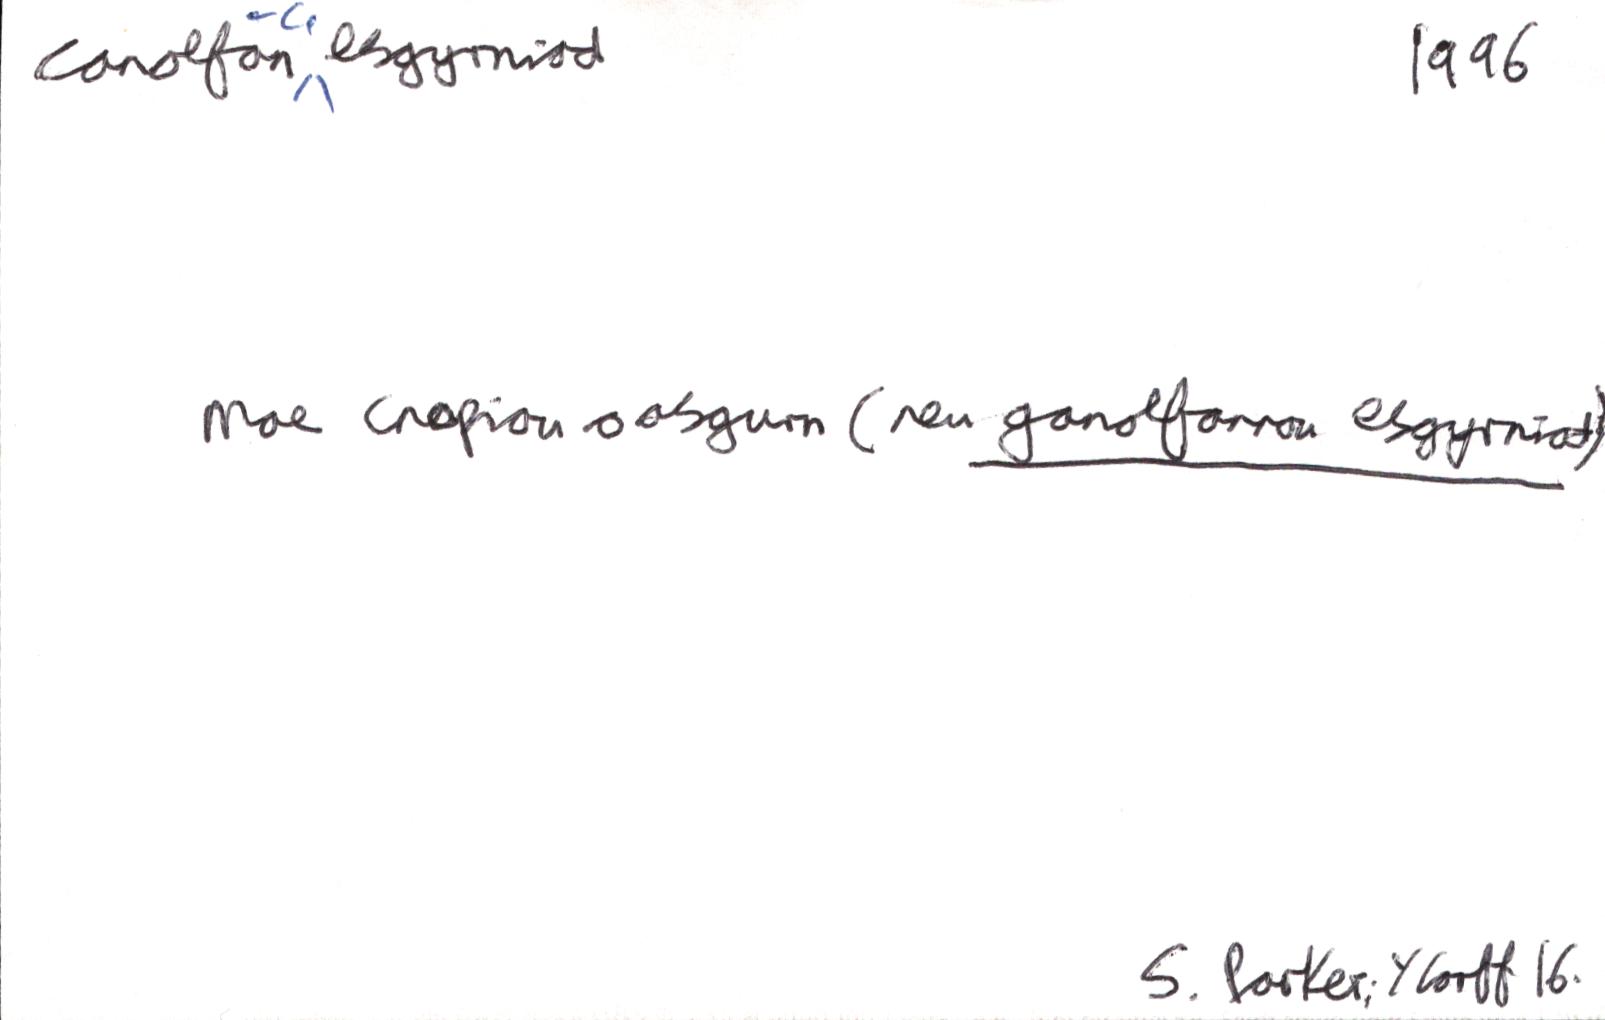 canolfan esgyrniad 1996
Mae cnapiau o asgwrn (neu ganolfannau esgyrniad)
S. Parker; Y Corff 16.